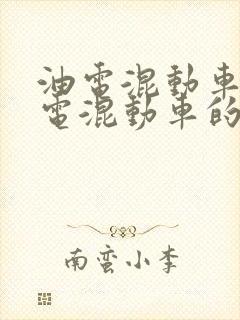 油電混動車
電混動車的
南蛮小李